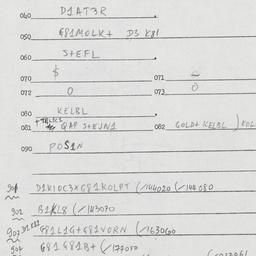 060 D1AT3R
050 G81MOLK+ D3 K81
060 S+EFL
070 $ 071
072 0 073 0
080 KELBL
081 QAP S+EJN1 082 GOLD+ KELBL
090 POS1N
901 D1K10C3XG81KOLPT (/144020 (/144080
902 B1KL8 (/143070
G81L1G+G81VORN (/163060
904 G81G81B+ (/177050